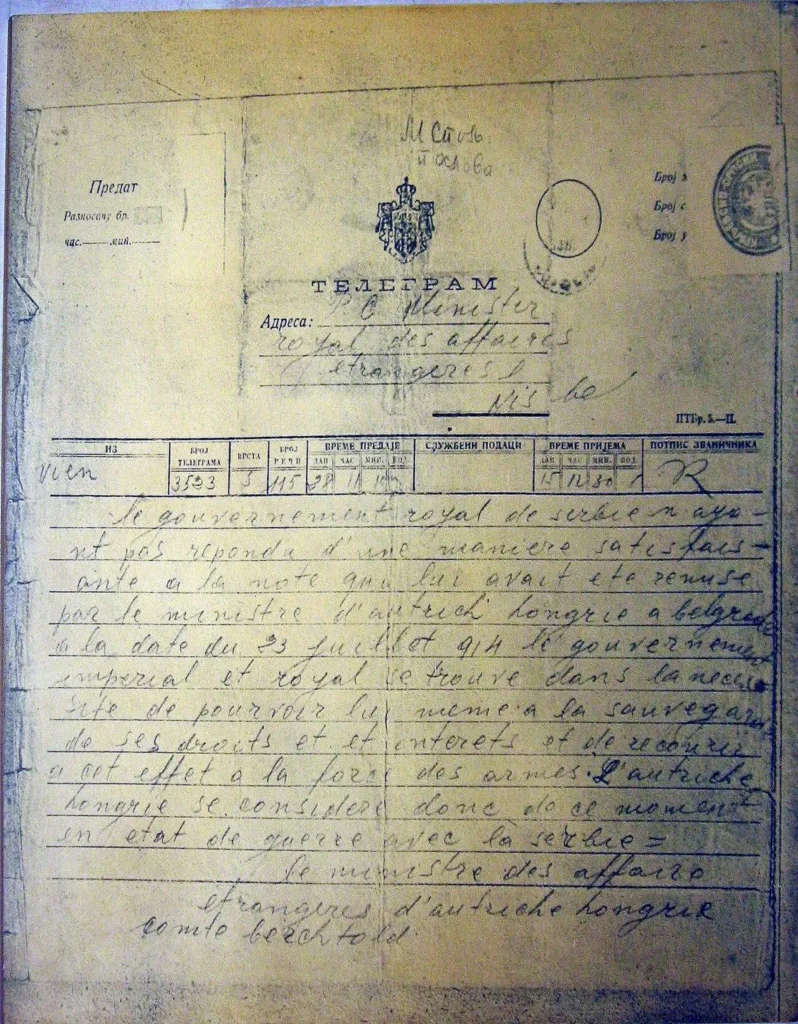 М Спољ.
послова
Предат
Разносачу бр.
час. мин.
Број
Број с
Број у
ТЕЛЕГРАМ
Адреса: Minister
royal des affaires
etrangeres
Nis
ПТБр. 5.—II.
ИЗ БРОЈ ТЕЛЕГРАМА ВРСТА БРОЈ РЕЧИ ВРЕМЕ ПРЕДАЈЕ СЛУЖБЕНИ ПОДАЦИ ВРЕМЕ ПРИЈЕМА ПОТПИС ЗВАНИЧНИКА
ДАН ЧАС МИН. ПОД. ДАН ЧАС МИН. ПОД.
Vien 3523 5 115 28 11 10 15 12 30 R
le gouvernement royal de serbie n aya-
nt pas repondu d'une maniere satisfais-
ante a la note qui lui avait ete remise
par le ministre d'autrich hongrie a belgrade
a la date du 23 juillet 914 le gouvernement
imperial et royal se trouve dans la neces-
site de pourvoir lui meme a la sauvegarde
de ses droits et et interets et de recourir
a cet effet a la force des armes. L'autriche
hongrie se considere donc de ce moment
en etat de guerre avec la serbie =
le ministre des affaire
etrangeres d'autriche hongrie
comte berchtold.